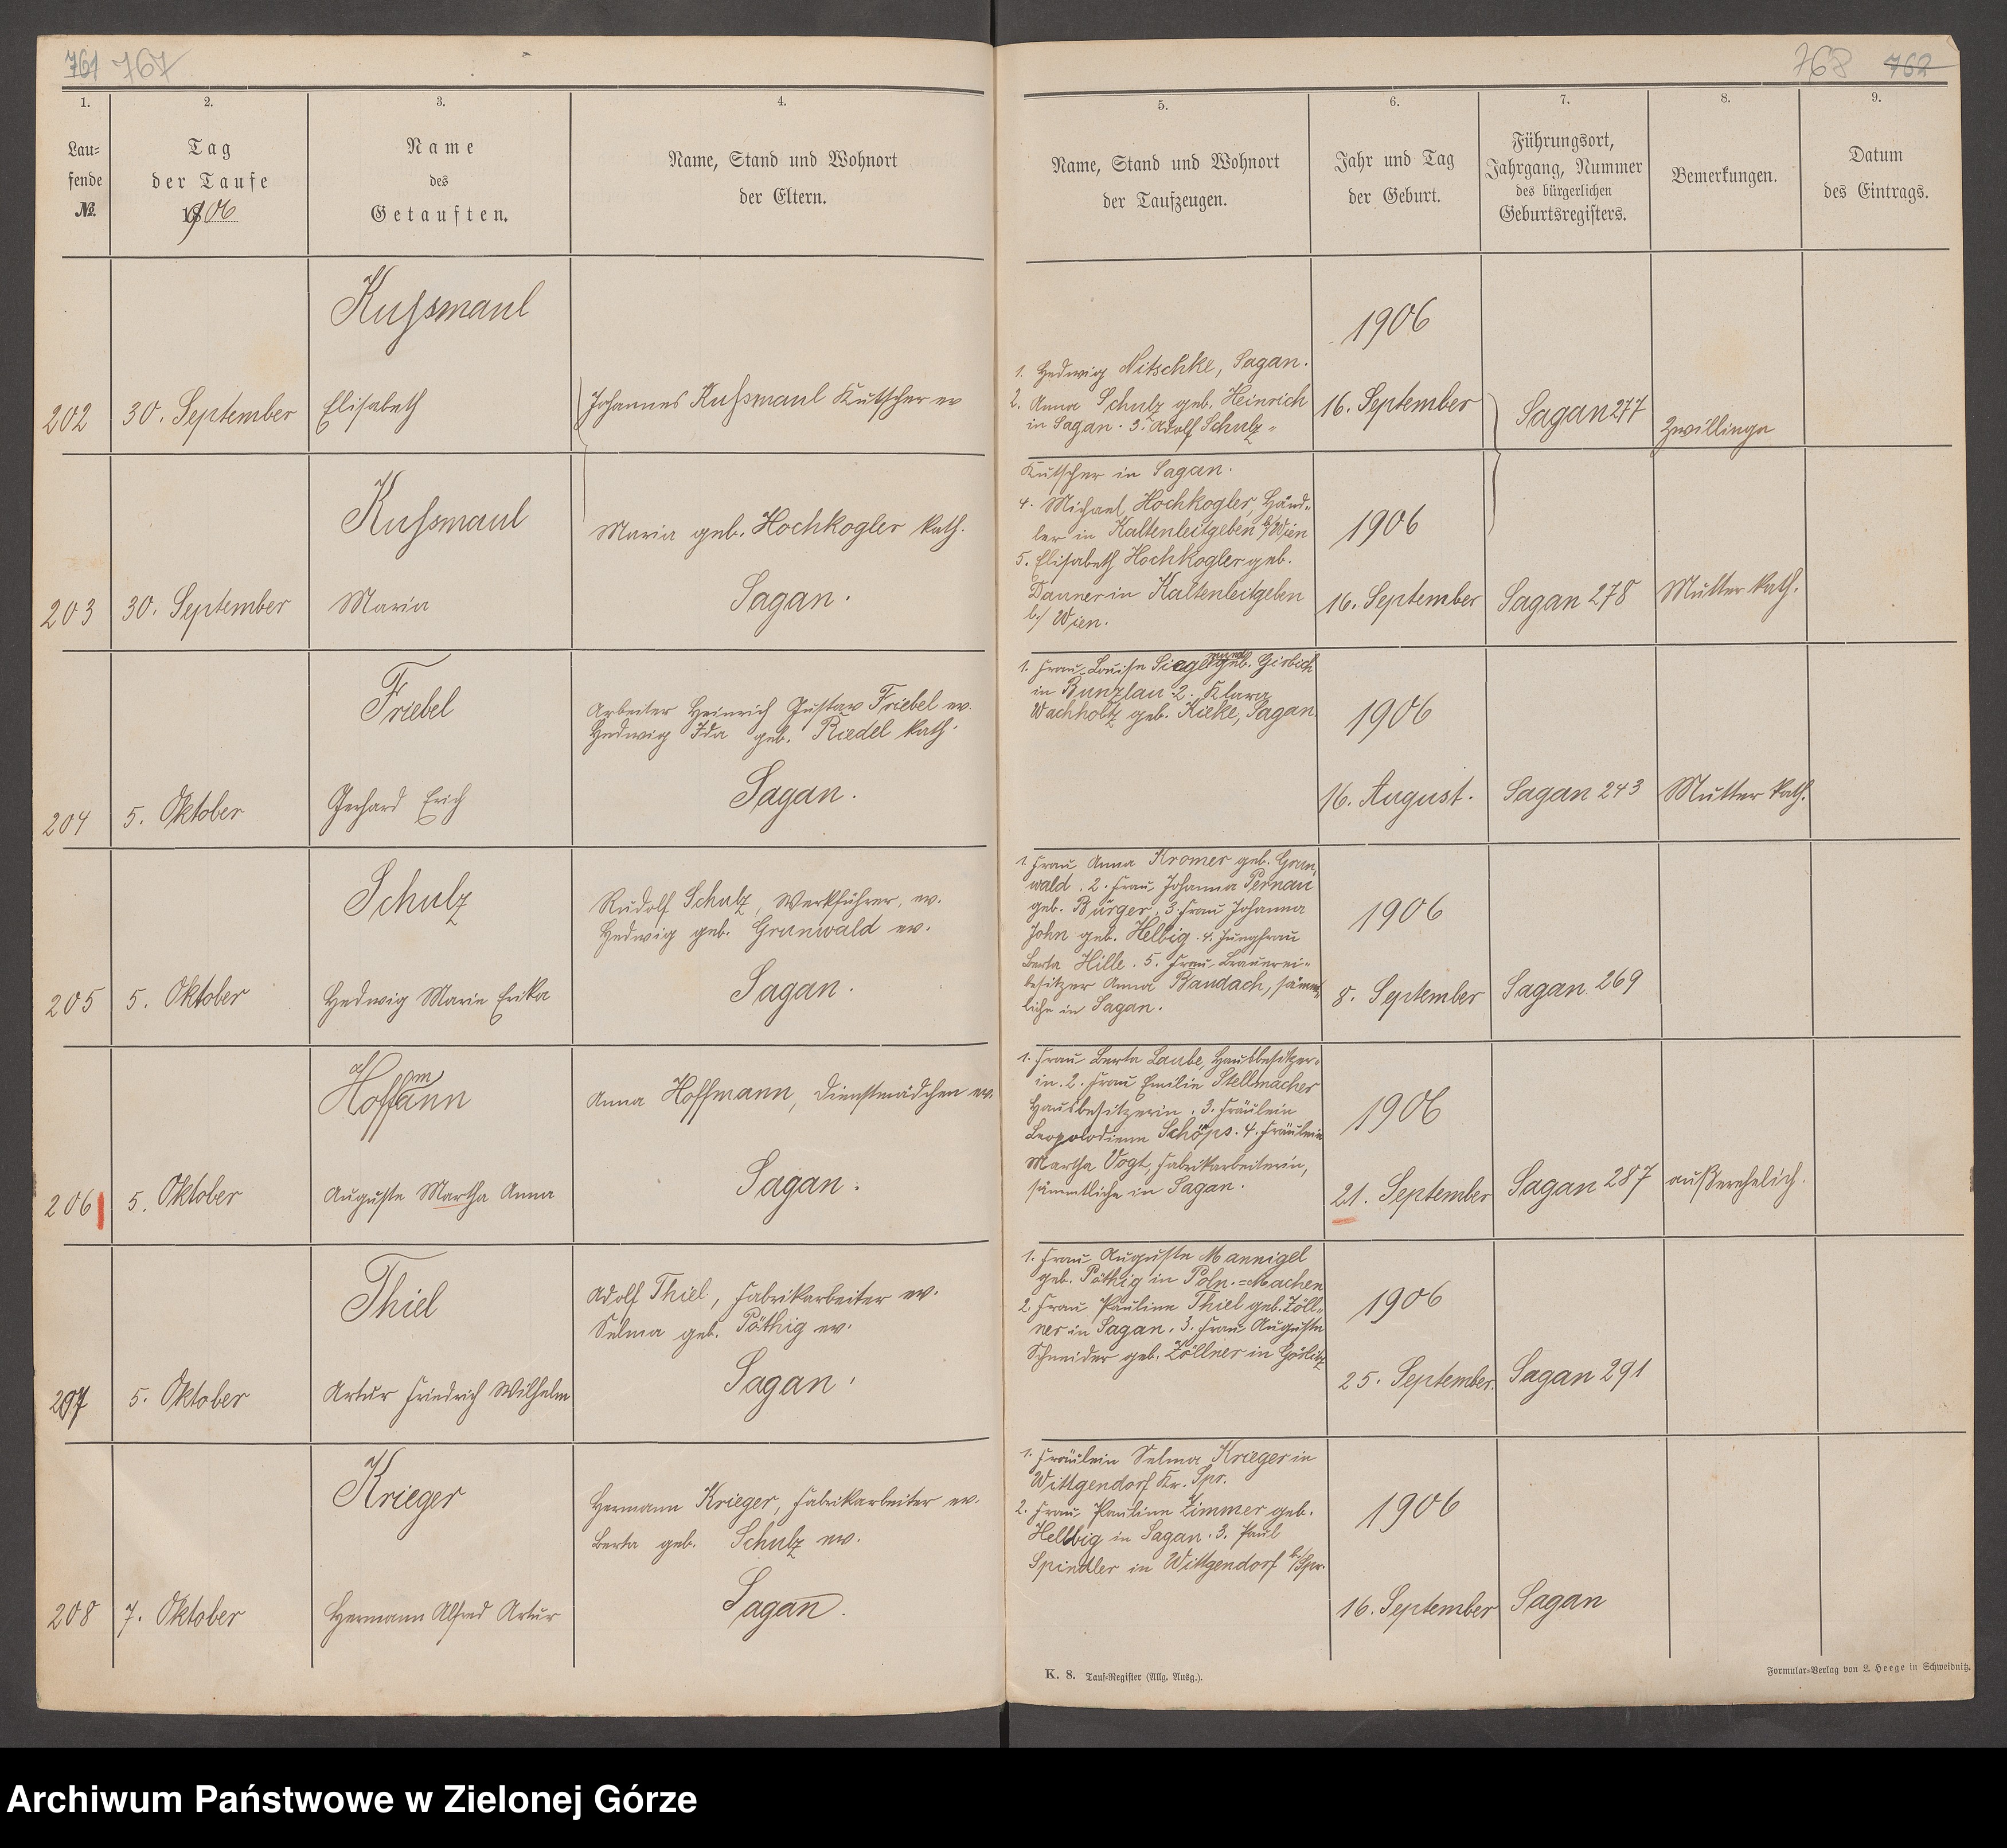 761 767
768 762
1.
2.
3.
4.
5.
6.
7.
8.
9.
Lau=
fende
№.
Tag
der Taufe
1906
Name
des
Getauften.
Name, Stand und Wohnort
der Eltern.
Name, Stand und Wohnort
der Taufzeugen.
Jahr und Tag
der Geburt.
Führungsort,
Jahrgang, Nummer
des bürgerlichen
Geburtsregisters.
Bemerkungen.
Datum
des Eintrags.
Kussmaul
202
30. September
Elisabeth
Johannes Kussmaul Kutscher ev
1. Hedwig Nitschke, Sagan.
2. Anna Schulz geb. Heinrich
in Sagan. 3. Adolf Schulz=
1906
16. September
Sagan 277
Zwillinge
Kussmaul
203
30. September
Maria
Maria geb. Hochkogler kath.
Sagan.
Kutscher in Sagan.
4. Michael Hochkogler, Händ=
ler in Kaltenleitgeben b/ Wien
5. Elisabeth Hochkogler geb.
Danner in Kaltenleitgeben
b./ Wien.
1906
16. September
Sagan 278
Mutter kath.
Friebel
204
5. Oktober
Gerhard Erich
Arbeiter Heinrich Gustav Friebel ev.
Hedwig Ida geb. Riedel kath.
Sagan.
1. Frau Louise geb.
in Bunzlau. 2. Klara
Wachholz geb. Kieke, Sagan
1906
16. August.
Sagan 243
Mutter kath.
Schulz
205
5. Oktober
Hedwig Marie Erika
Rudolf Schulz, Werkführer, ev.
Hedwig geb. Grunwald ev.
Sagan.
1. Frau Anna Kromer geb. Grun,
wald. 2. Frau Johanna Pernau
geb. Bürger, 3. Frau Johanna
John geb. Helbig. 4. Jungfrau
Berta Hille. 5. Frau Brauerei=
besitzer Anna Baudach, sämmt
liche in Sagan.
1906
8. September
Sagan 269
Hoffmann
206
5. Oktober
Auguste Martha Anna
Anna Hoffmann, Dienstmädchen ev.
Sagan.
1. Frau Berta Laube, Hausbesitzer=
in. 2. Frau Emilie Stellmacher
Hausbesitzerin. 3. Fräulein
Leopoldiene Schöps. 4. Fräulein
Martha Vogt, Fabrikarbeiterin,
sämmtliche in Sagan.
1906
21. September
Sagan 287
außerehelich.
Thiel
207
5. Oktober
Artur Friedrich Wilhelm
Adolf Thiel, Fabrikarbeiter ev.
Selma geb. Pöthig ev.
Sagan.
1. Frau Auguste Mannigel
geb. Pöthig in Poln.=Machen
2. Frau Pauline Thiel geb. Zöll=
ner in Sagan. 3. Frau Auguste
Schneider geb. Zöllner in Görlitz
1906
25. September.
Sagan 291
Krieger
208
7. Oktober
Hermann Alfred Artur
Hermann Krieger, Fabrikarbeiter ev.
Berta geb. Schulz ev.
Sagan.
1. Fräulein Selma Krieger in
Wittgendorf Kr. Spr.
2. Frau Pauline Zimmer geb.
Helbig in Sagan. 3. Paul
Spindler in Wittgendorf b./Spr.
1906
16. September
Sagan
K. 8. Tauf=Register (Allg. Ausg.).
Formular=Verlag von L. Heege in Schweidnitz.
Archiwum Państwowe w Zielonej Górze